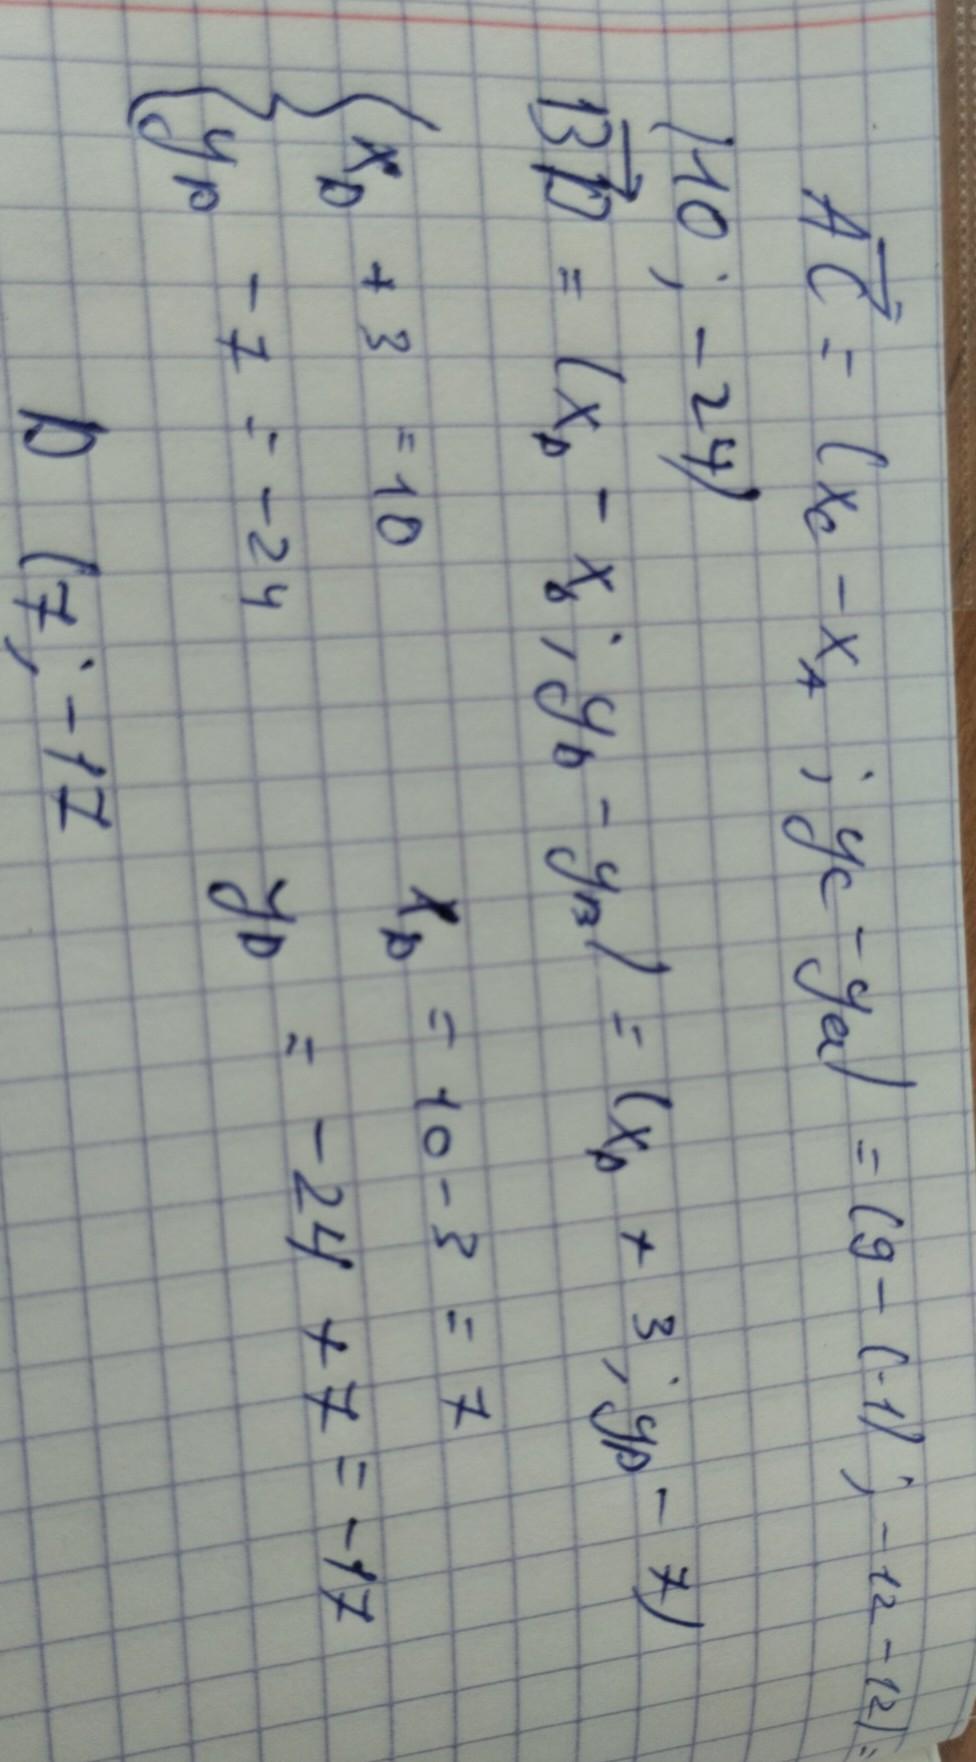 AC = (x_C - x_A; y_C - y_A) = (9 - (-1); -12 - 12) =
(10; -24)
BD = (x_D - x_B; y_D - y_B) = (x_D + 3; y_D - 7)
{ x_D + 3 = 10 x_D = 10 - 3 = 7
y_D - 7 = -24 y_D = -24 + 7 = -17
D (7; -17